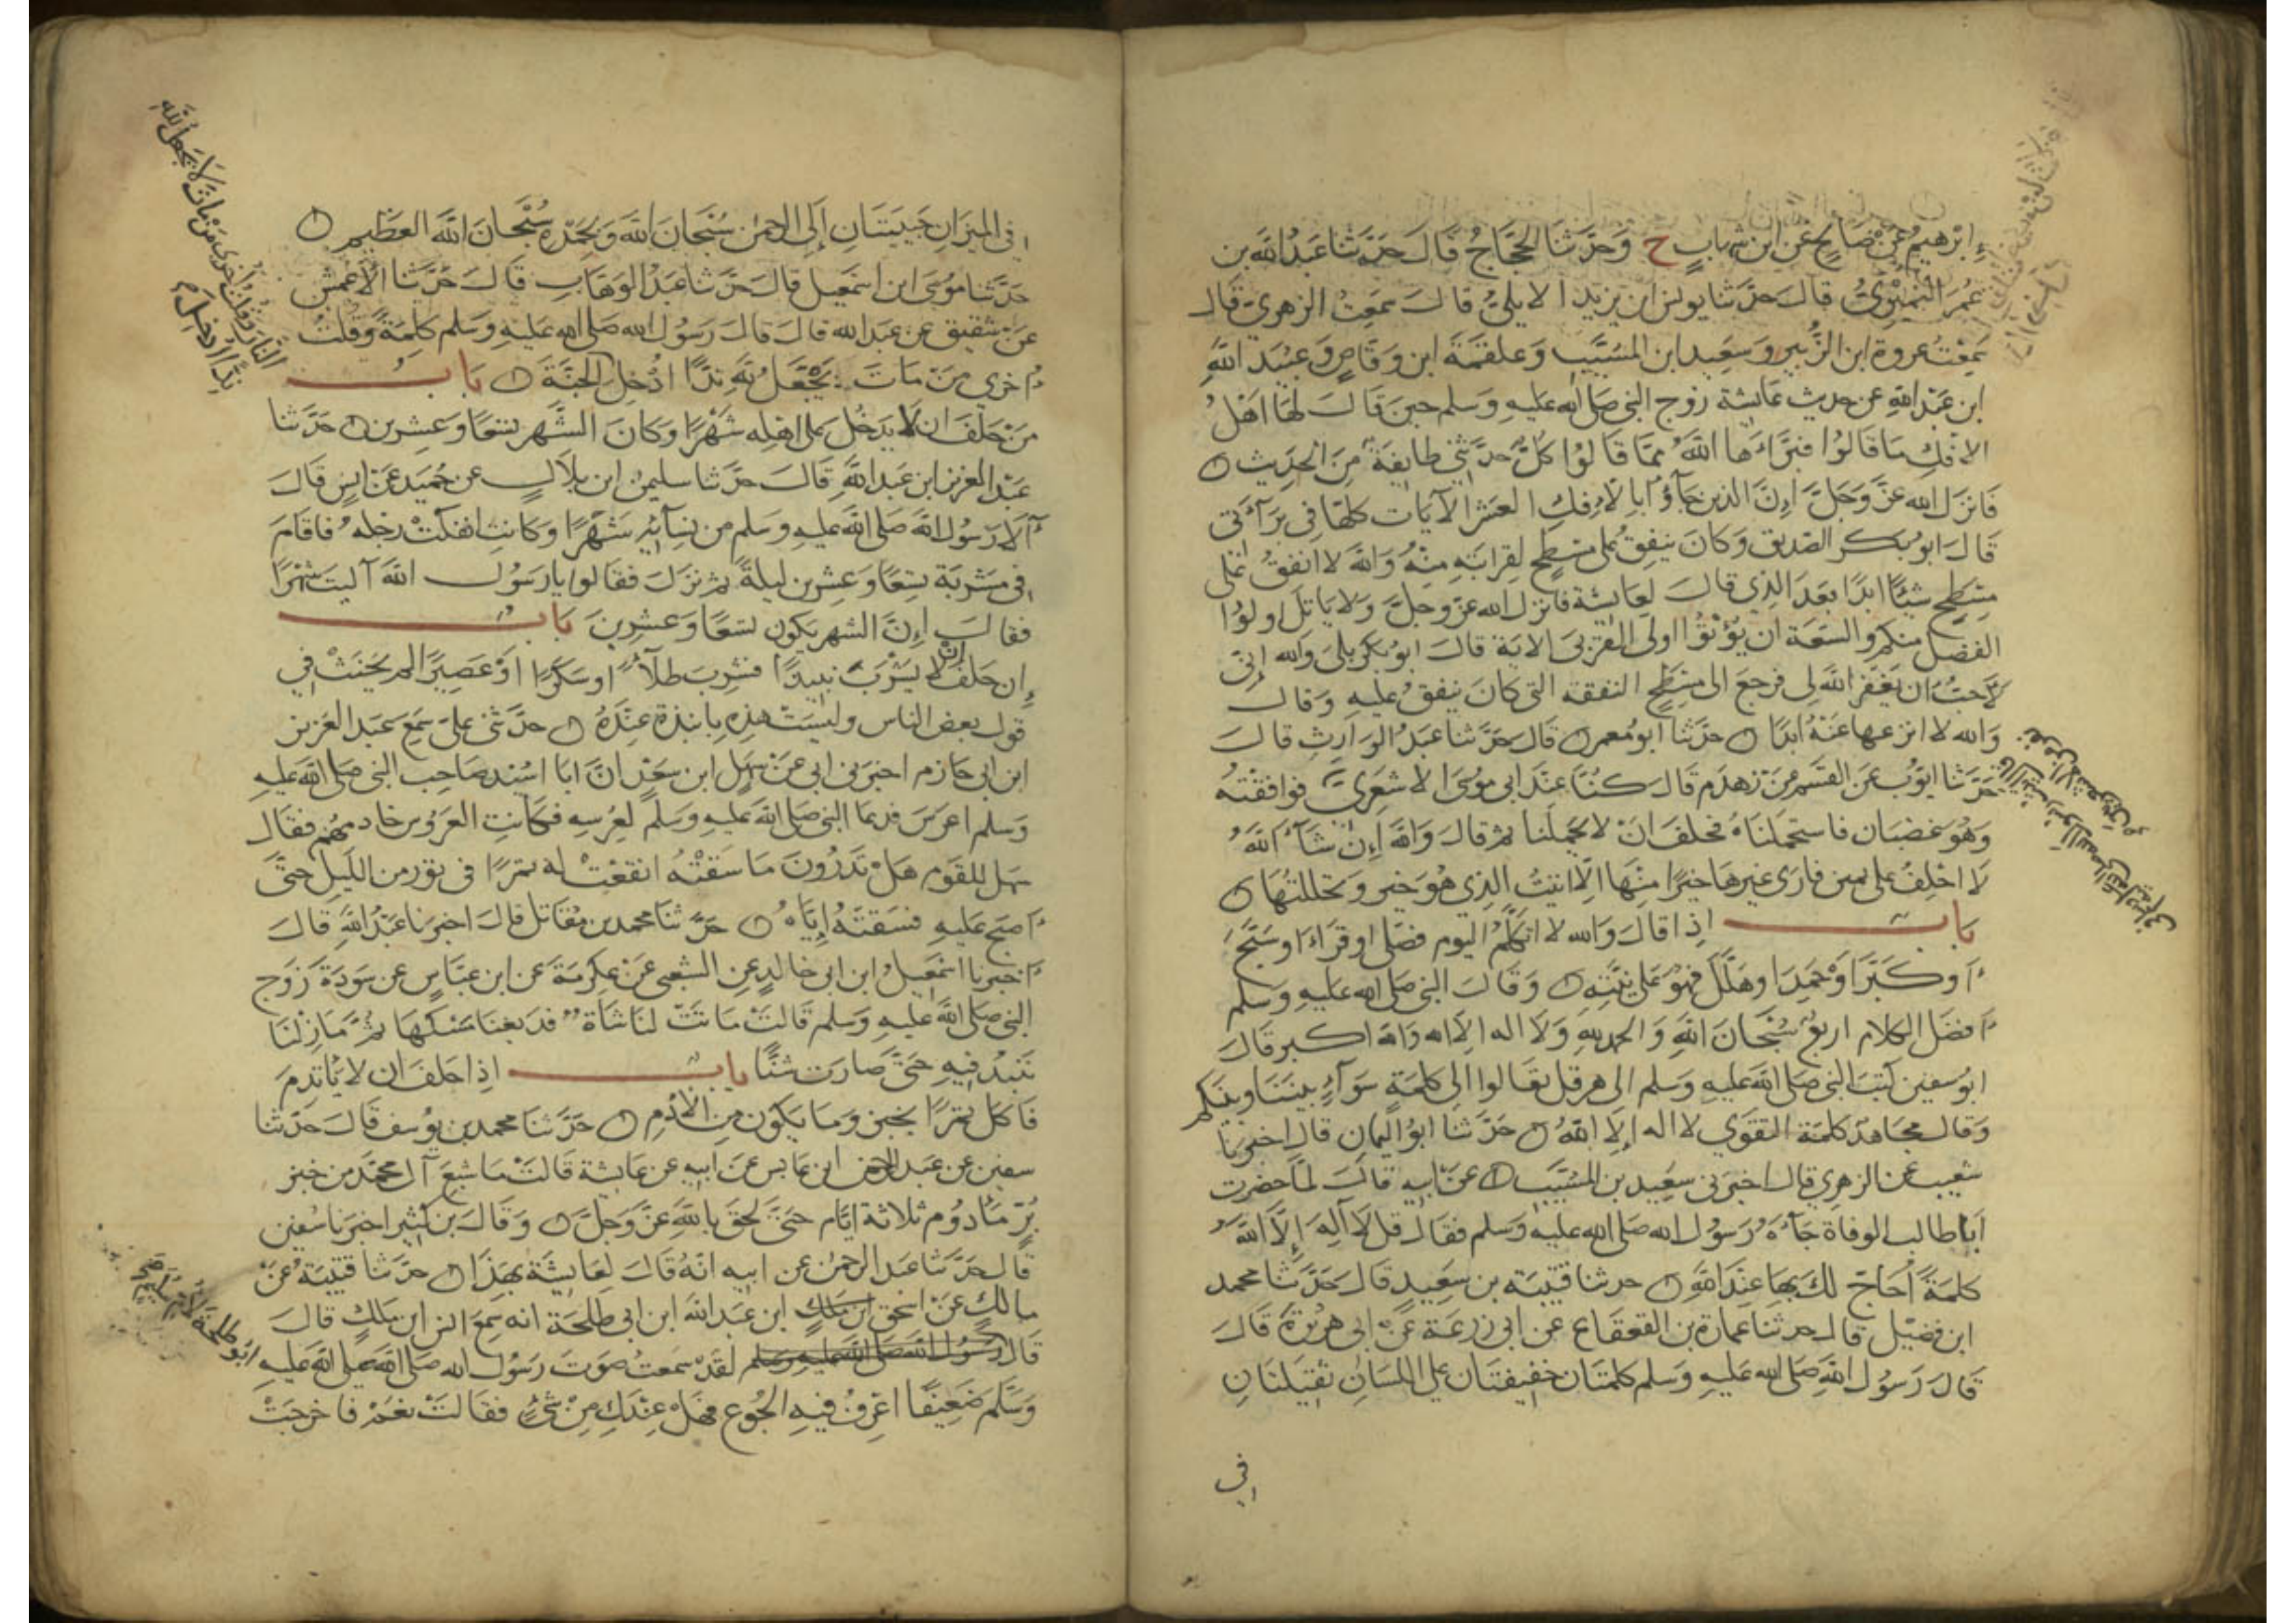 إبرهيم عن صالح عن ابن شهاب ح وحدثنا الحجاج قال حدثنا عبد الله بن
عمر النميري قال حدثنا يونس ابن يزيد الايلي قال سمعت الزهري قال
سمعت عروة ابن الزبير وسعيد ابن المسيب وعلقمة ابن وقاص وعبيد الله
ابن عبد الله عن حديث عائشة زوج النبي صلى الله عليه وسلم حين قال لها اهل
الافك ما قالوا فبرأها الله مما قالوا كل حدثني طايفة من الحديث
فانزل الله عز وجل إن الذين جاؤا بالإفك العشر الآيات كلها في برآءتي
قال ابو بكر الصديق وكان ينفق على مسطح لقرابته منه والله لا انفق على
مسطح شيئا ابدا بعد الذي قال لعايشة فانزل الله عز وجل ولا ياتل اولوا
الفضل منكم والسعة ان يؤتوا اولى القربى الاية قال ابو بكر بلى والله إني
لأحب ان يغفر الله لي فرجع الى مسطح النفقة التي كان ينفق عليه وقال
والله لا انزعها عنه ابدا حدثنا ابو معمر قال حدثنا عبد الوارث قال
حدثنا ايوب عن القسم عن زهدم قال كنا عند ابي موسى الاشعري فوافقته
وهو غضبان فاستحملناه فحلف ان لا يحملنا ثم قال والله إن شاء الله
لا احلف على يمين فارى غيرها خيرا منها الا اتيت الذي هو خير وتحللتها
باب اذا قال والله لا اتكلم اليوم فصلى او قرأ او سبح
أو كبر او حمد او هلل فهو على نيته وقال النبي صلى الله عليه وسلم
أفضل الكلام اربع سبحان الله والحمد لله ولا اله الا الله والله اكبر قال
ابو سفين كتب النبي صلى الله عليه وسلم الى هرقل تعالوا الى كلمة سوآء بيننا وبينكم
وقال مجاهد كلمة التقوي لا اله إلا الله حدثنا ابو اليمان قال اخبرنا
شعيب عن الزهري قال اخبرني سعيد بن المسيب عن ابيه قال لما حضرت
ابا طالب الوفاة جآءه رسول الله صلى الله عليه وسلم فقال قل لا اله إلا الله
كلمة أحاج لك بها عند الله حدثنا قتيبة بن سعيد قال حدثنا محمد
ابن فضيل قال حدثنا عمارة بن القعقاع عن ابي زرعة عن ابي هريرة قال
قال رسول الله صلى الله عليه وسلم كلمتان خفيفتان على اللسان ثقيلتان
في
في الميزان حبيبتان إلى الرحمن سبحان الله وبحمده سبحان الله العظيم
حدثنا موسى ابن اسمعيل قال حدثنا عبد الوهاب قال حدثنا الأعمش
عن شقيق عن عبد الله قال قال رسول الله صلى الله عليه وسلم كلمة وقلت
أخرى من مات يجعل لله ندا ادخل الجنة باب
من حلف ان لا يدخل على اهله شهرا وكان الشهر تسعا وعشرين حدثنا
عبد العزيز ابن عبد الله قال حدثنا سليمن ابن بلال عن حميد عن انس قال
آلا رسول الله صلى الله عليه وسلم من نسآئه شهرا وكانت انفكت رجله فاقام
في مشربة تسعا وعشرين ليلة ثم نزل فقالوا يا رسول الله آليت شهرا
فقال إن الشهر يكون تسعا وعشرين باب
إن حلف ان لا يشرب نبيذا فشرب طلآء او سكرا او عصيرا لم يحنث في
قول بعض الناس وليست هذه بانبذة عنده حدثني علي سمع عبد العزيز
ابن ابي حازم اخبرني ابي عن سهل ابن سعد ان ابا اسيد صاحب النبي صلى الله عليه
وسلم اعرس فدعا النبي صلى الله عليه وسلم لعرسه فكانت العروس خادمهم فقال
سهل للقوم هل تدرون ما سقته انقعت له تمرا في تور من الليل حتى
أصبح عليه فسقته إياه حدثنا محمد بن مقاتل قال اخبرنا عبد الله قال
أخبرنا اسمعيل ابن ابي خالد عن الشعبي عن عكرمة عن ابن عباس عن سودة زوج
النبي صلى الله عليه وسلم قالت ماتت لنا شاة فدبغنا مسكها ثم ما زلنا
ننبذ فيه حتى صارت شنا باب اذا حلف ان لا ياتدم
فاكل تمرا بخبز وما يكون من الأدم حدثنا محمد بن يوسف قال حدثنا
سفين عن عبد الرحمن ابن عابس عن ابيه عن عايشة قالت ما شبع آل محمد من خبز
بر مأدوم ثلاثة ايام حتى لحق بالله عز وجل وقال بن كثير اخبرنا سفين
قال حدثنا عبد الرحمن عن ابيه انه قال لعايشة بهذا حدثنا قتيبة عن
مالك عن اسحق ابن ملك ابن عبد الله ابن ابي طلحة انه سمع انس ابن ملك قال
قال رسول الله صلى الله عليه وسلم لقد سمعت صوت رسول الله صلى الله عليه
وسلم ضعيفا اعرف فيه الجوع فهل عندك من شيء فقالت نعم فاخرجت
من مات لا يجعل لله
النار وقلت أخرى
ندا ادخل
ابو طلحة لأم سليم